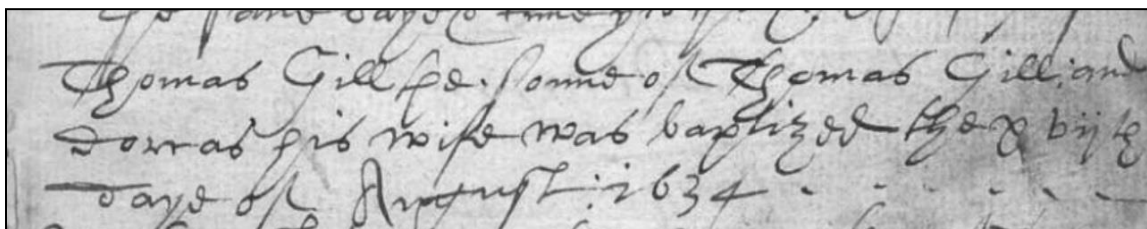 the same daye & time
Thomas Gill the sonne of Thomas Gill: and
Dorcas his wife was baptized the xvijth
daye of August: 1634